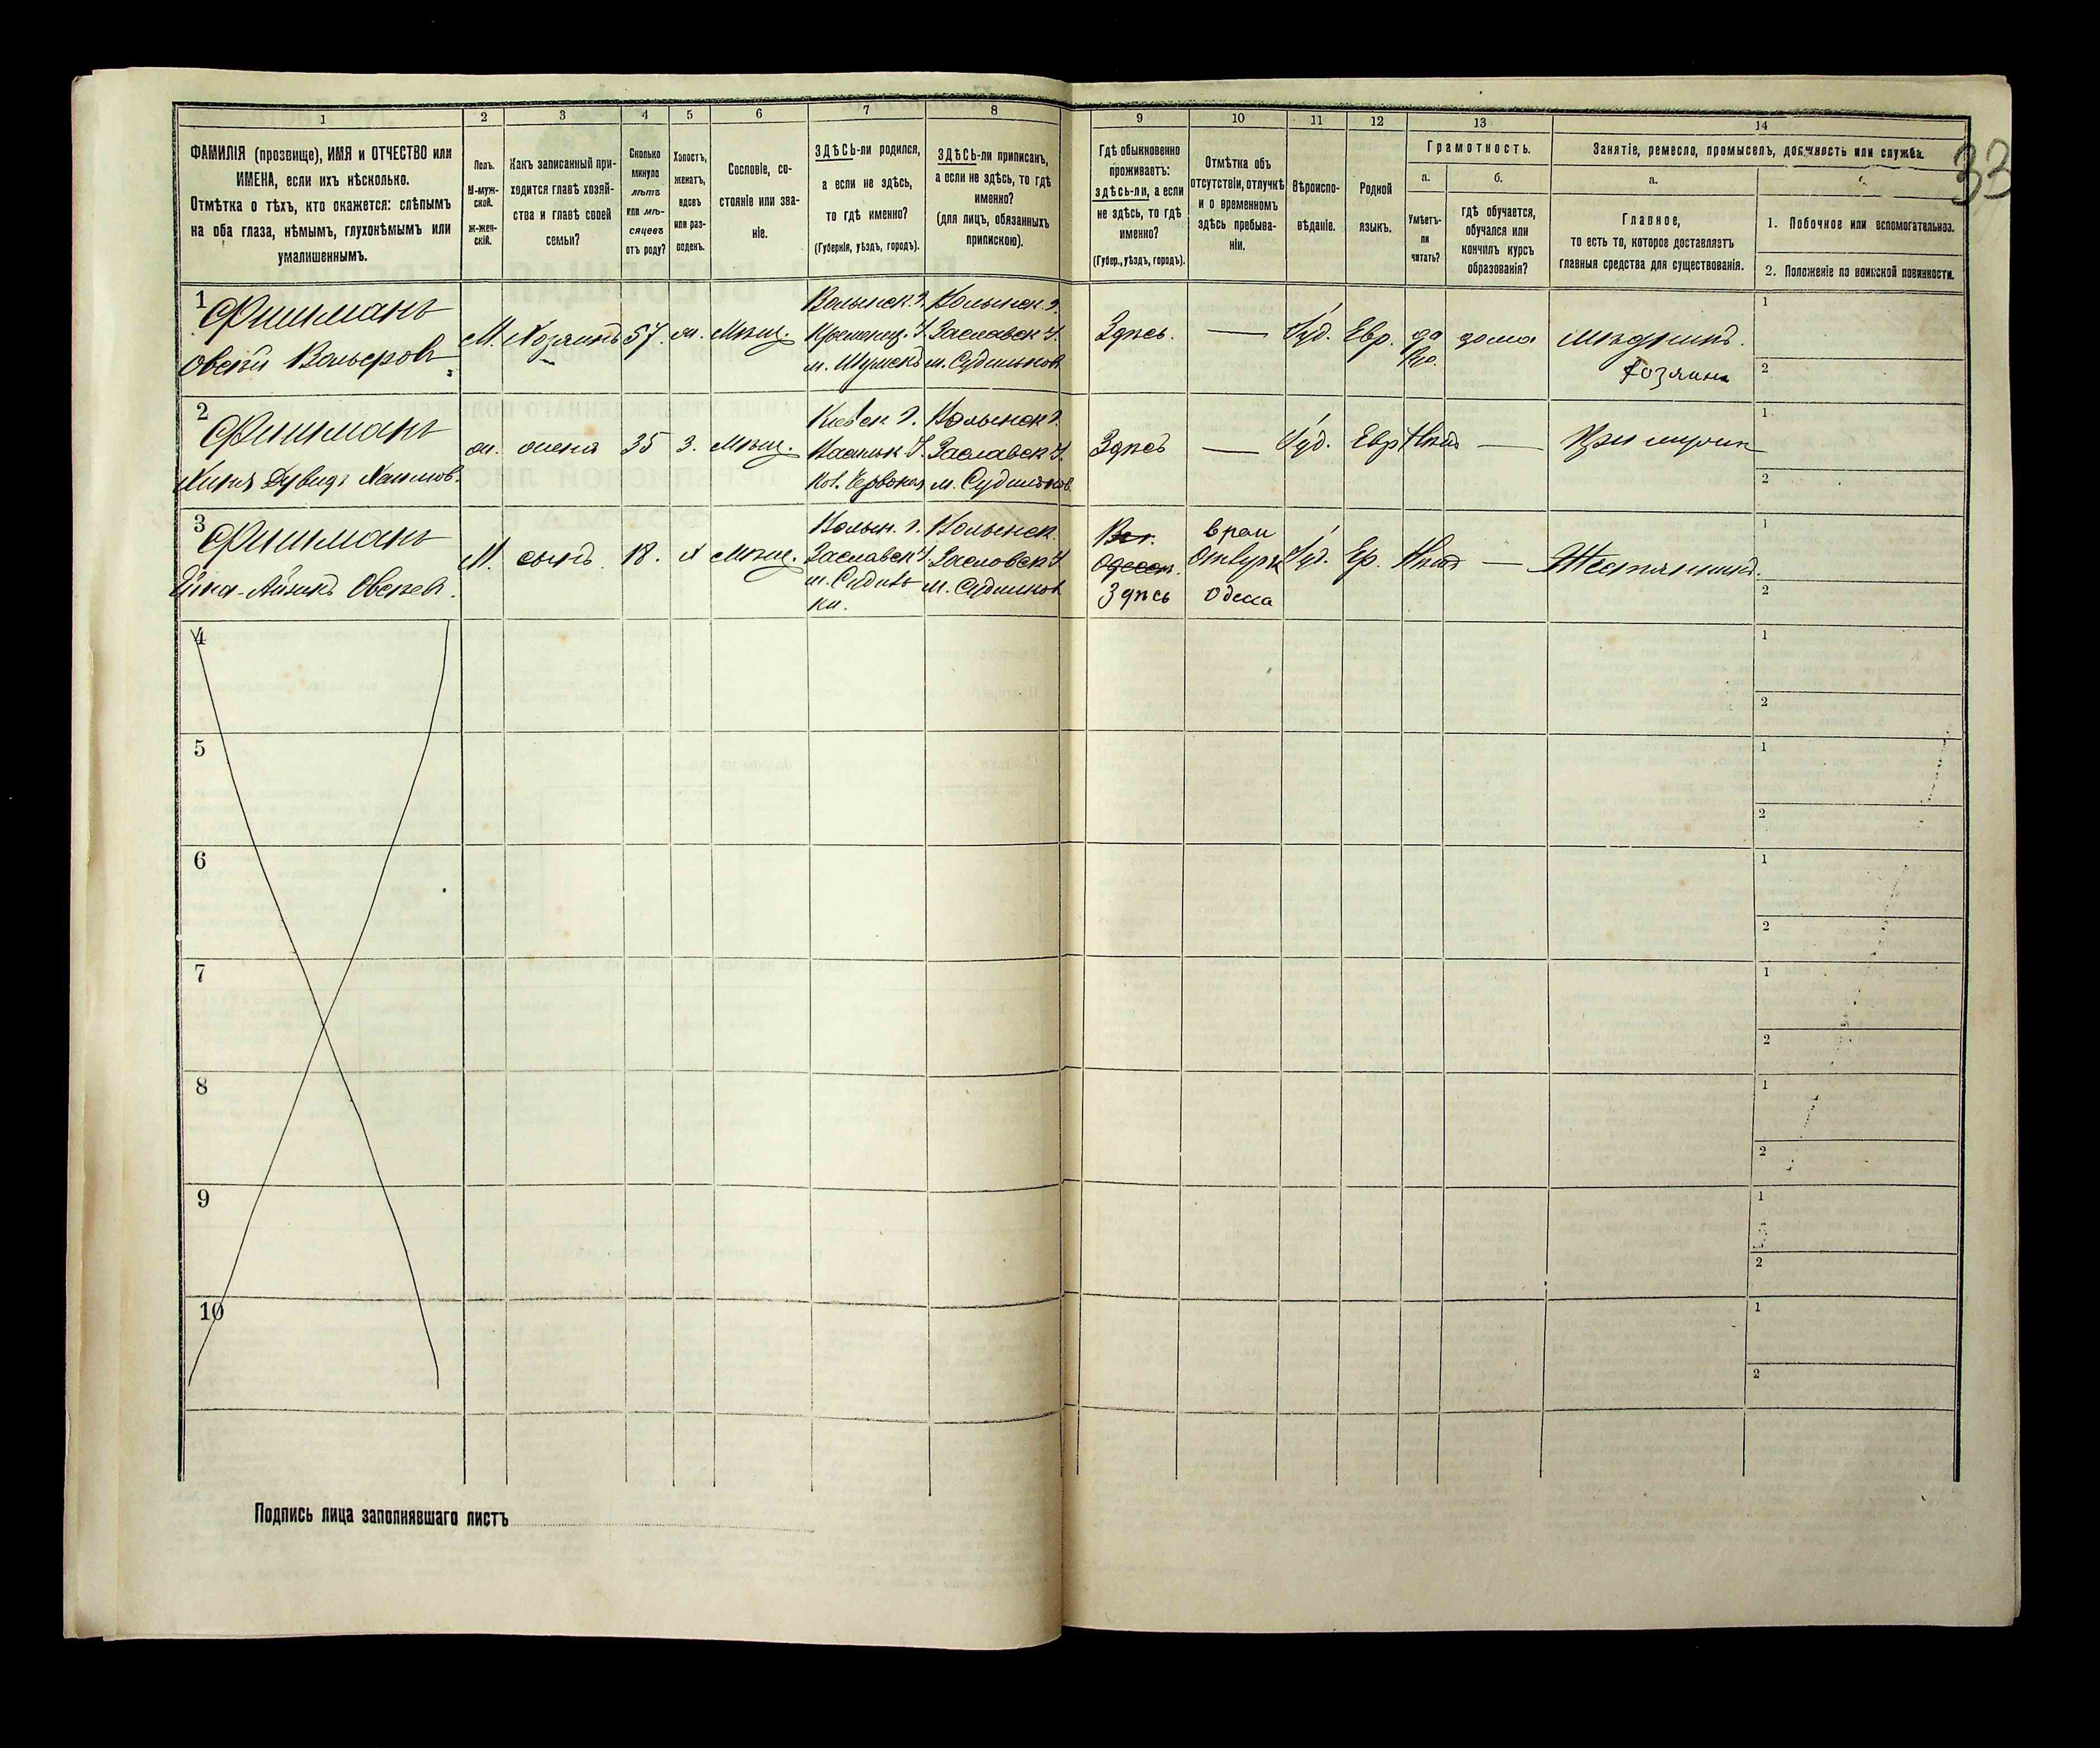 1
2
3
4
5
6
7
8
9
10
11
12
13
14
ФАМИЛІЯ (прозвище), ИМЯ и ОТЧЕСТВО или
ИМЕНА, если ихъ нѣсколько.
Отмѣтка о тѣхъ, кто окажется: слѣпымъ
на оба глаза, нѣмымъ, глухонѣмымъ или
умалишеннымъ.
Полъ.
М-муж-
ской.
Ж-жен-
скій.
Какъ записанный при-
ходится главѣ хозяй-
ства и главѣ своей
семьи?
Сколько
минуло
лѣтъ
или мѣ-
сяцевъ
отъ роду?
Холостъ,
женатъ,
вдовъ
или раз-
веденъ.
Сословіе, со-
стояніе или зва-
ніе.
ЗДѢСЬ-ли родился,
а если не здѣсь,
то гдѣ именно?
(Губернія, уѣздъ, городъ).
ЗДѢСЬ-ли приписанъ,
а если не здѣсь, то гдѣ
именно?
(для лицъ, обязанныхъ
припискою).
Гдѣ обыкновенно
проживаетъ:
здѣсь-ли, а если
не здѣсь, то гдѣ
именно?
(Губер., уѣздъ, городъ).
Отмѣтка объ
отсутствіи, отлучкѣ
и о временномъ
здѣсь пребыва-
ніи.
Вѣроиспо-
вѣданіе.
Родной
языкъ.
Грамотность.
а.
Умѣетъ-
ли
читать?
б.
гдѣ обучается,
обучался или
кончилъ курсъ
образованія?
Занятіе, ремесло, промыселъ, должность или служба.
а.
Главное,
то есть то, которое доставляетъ
главныя средства для существованія.
1. Побочное или вспомогательное.
2. Положеніе по воинской повинности.
33
1
Фишманъ
М. Хозяинъ 57. ж. Мѣщ.
Волынск. г.
Кременец. У.
м. Шумскъ
Волынск. г.
Заславск У.
м. Судилков
Здѣсь. — Іуд. Евр. да
дома
Хозяинъ
1
2
2
Фишманъ
Хаимов.
жена 35 з. Мѣщ.
Киевск г.
Волынск г.
Заславск У.
м. Судилков
Здѣсь — Іуд. Евр Нѣтъ —
1
2
3
Фишманъ
Айзикъ Овсеев.
М. сынъ 18. х Мѣщ.
Волын. г.
Заславск У.
м. Судилк
ки.
Волынск.
Заславск У
м. Судилков
Одесса.
Здѣсь
Одесса
Іуд. Ев. Нѣтъ — Жестяникъ.
1
2
4
1
2
5
1
2
6
1
2
7
1
2
8
1
2
9
1
2
10
1
2
Подпись лица заполнявшаго листъ